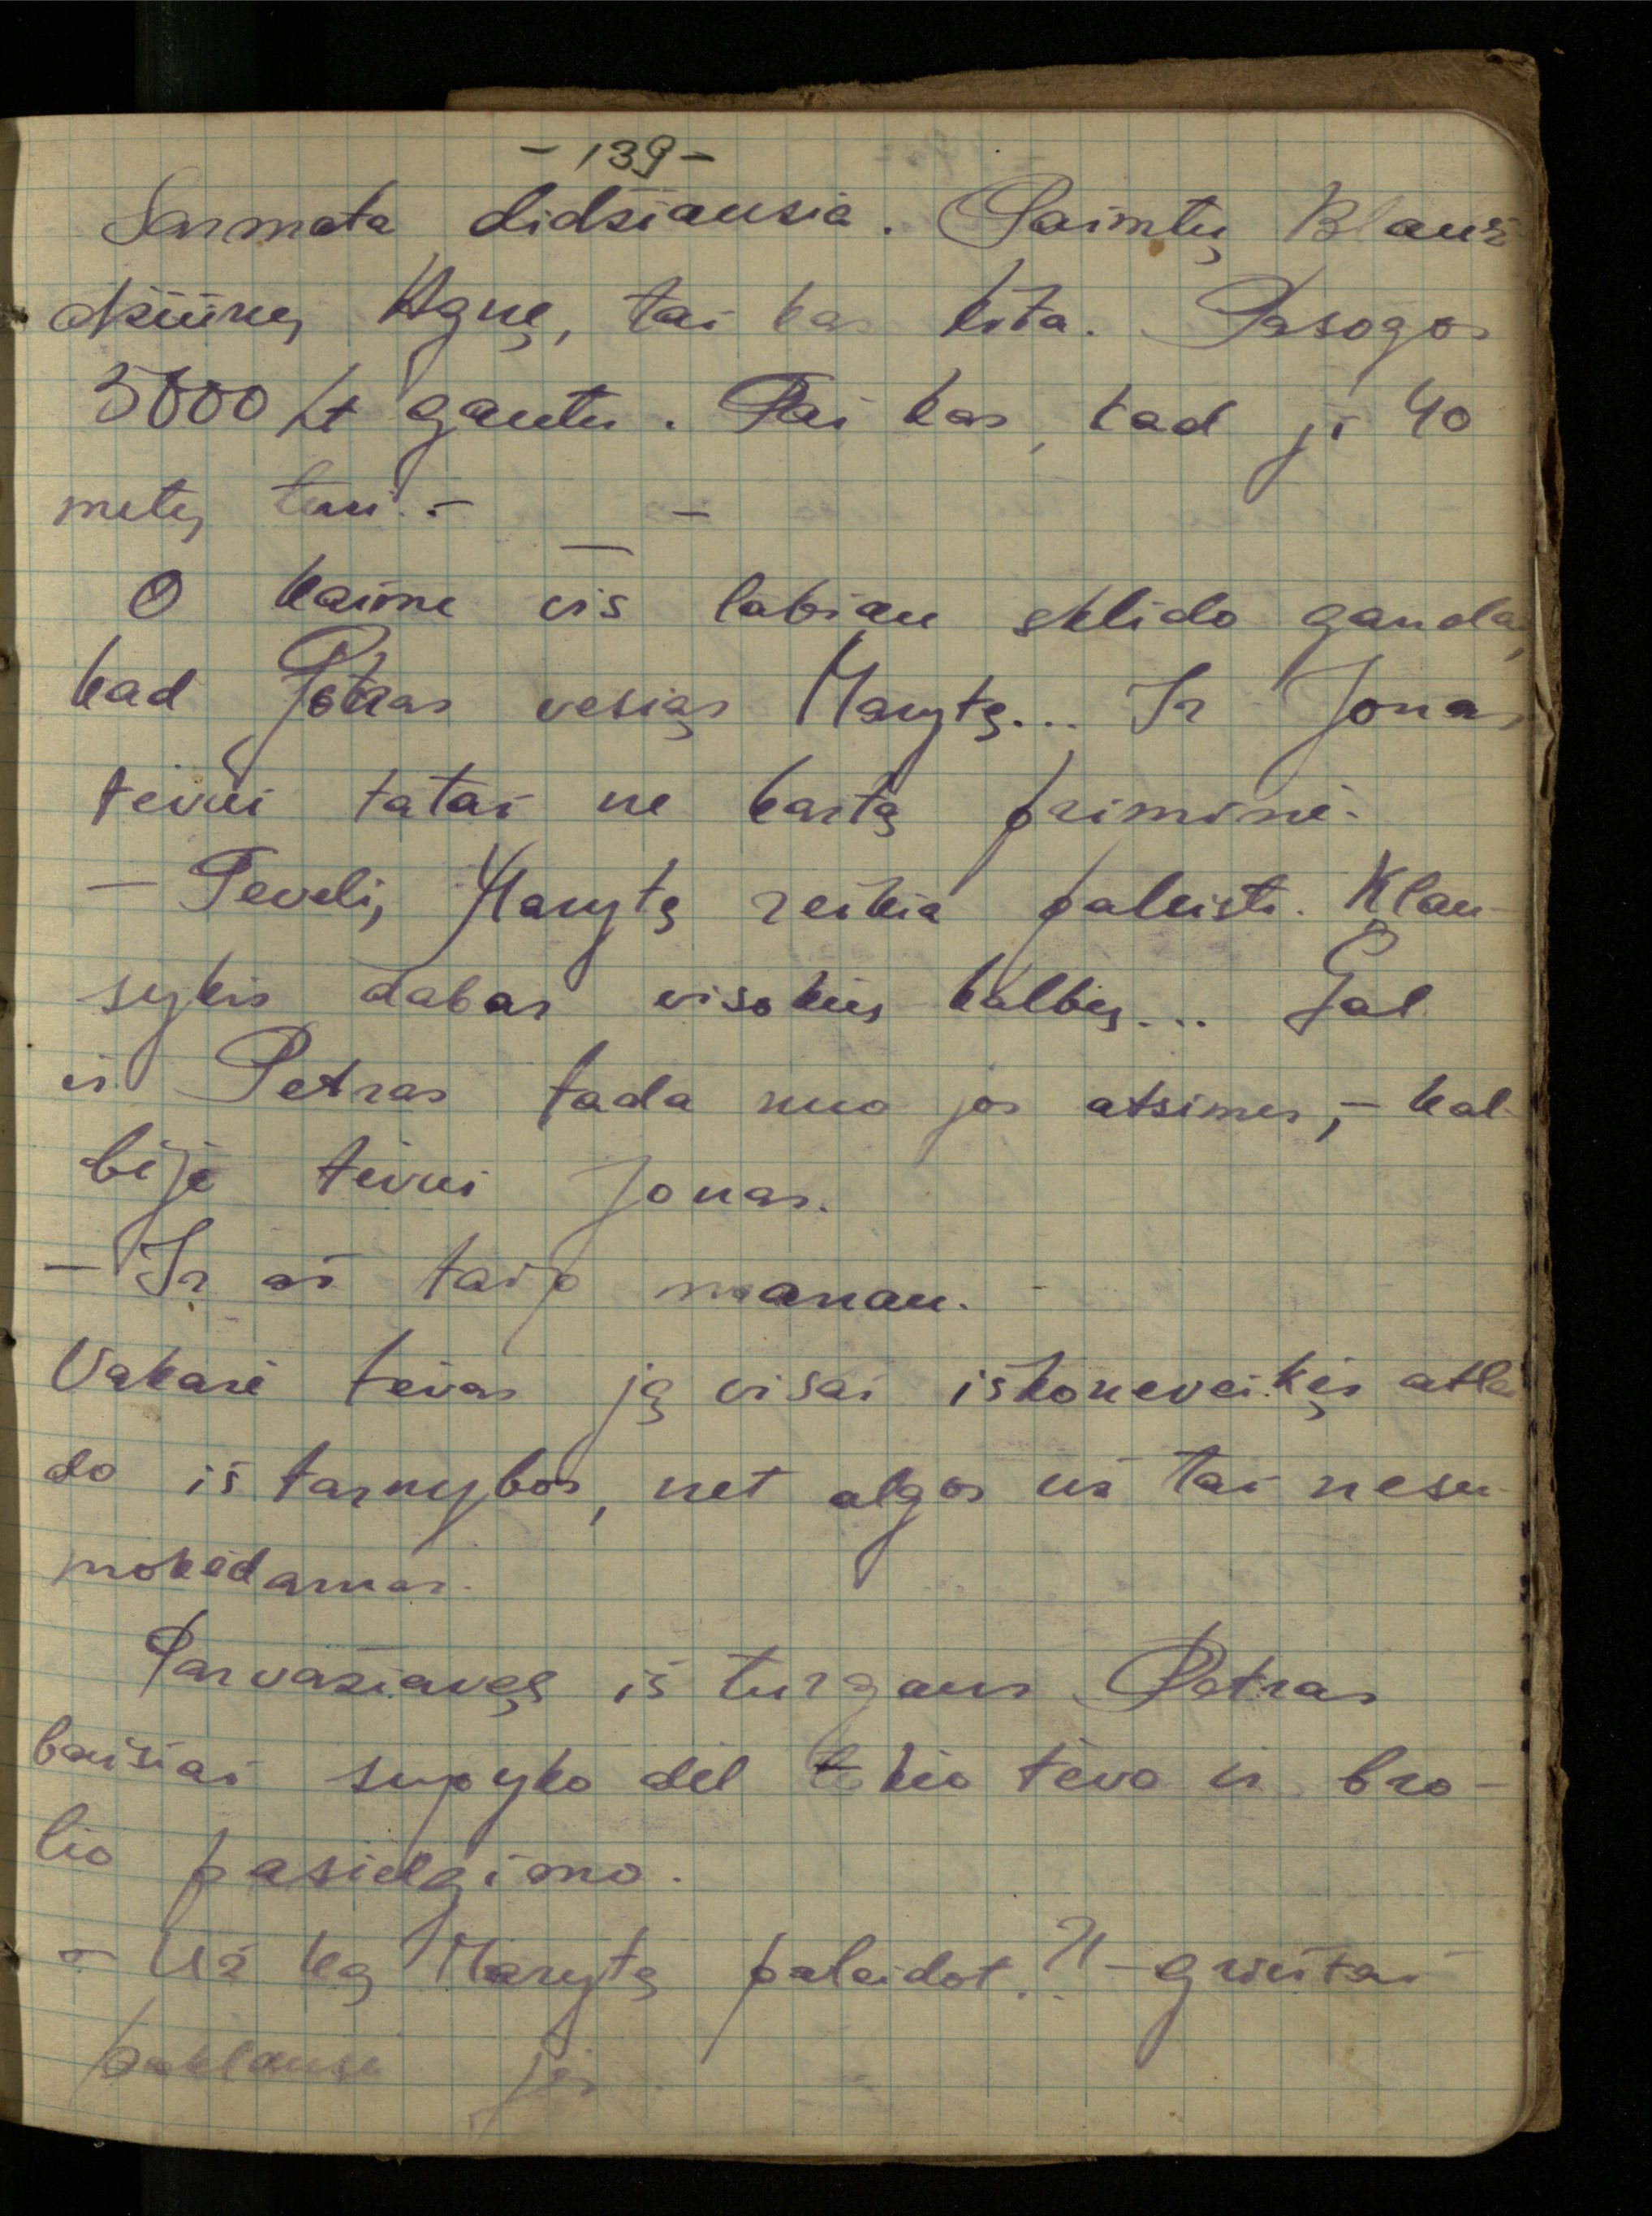 - 139 -
Sarmata didžiausia. Paimtų Blauz-
džiūnų Agnę, tai kas kita. Pasogos
5000 Lt gautu. Tai kas, kad ji 40
metų turi. - -
O kaime vis labiau sklido gandai,
kad Petras vesiąs Marytę... Ir Jonas
tėvui tatai ne kartą priminė.
- Teveli, Marytę reikia paleisti. Klau-
sykis dabar visokių kalbų... Gal
ir Petras tada nuo jos atsimes, - kal-
bėjo tėvui Jonas.
- Ir aš taip manau.
Vakare tėvas ją visai iškoneveikęs atlei
do iš tarnybos, net algos už tai nesu-
mokėdamas.
Parvažiavęs iš turgaus Petras
baisiai supyko dėl tokio tėvo ir bro-
lio pasielgimo.
- Už ką Marytę paleidot?! - griežtai
paklausė jis.